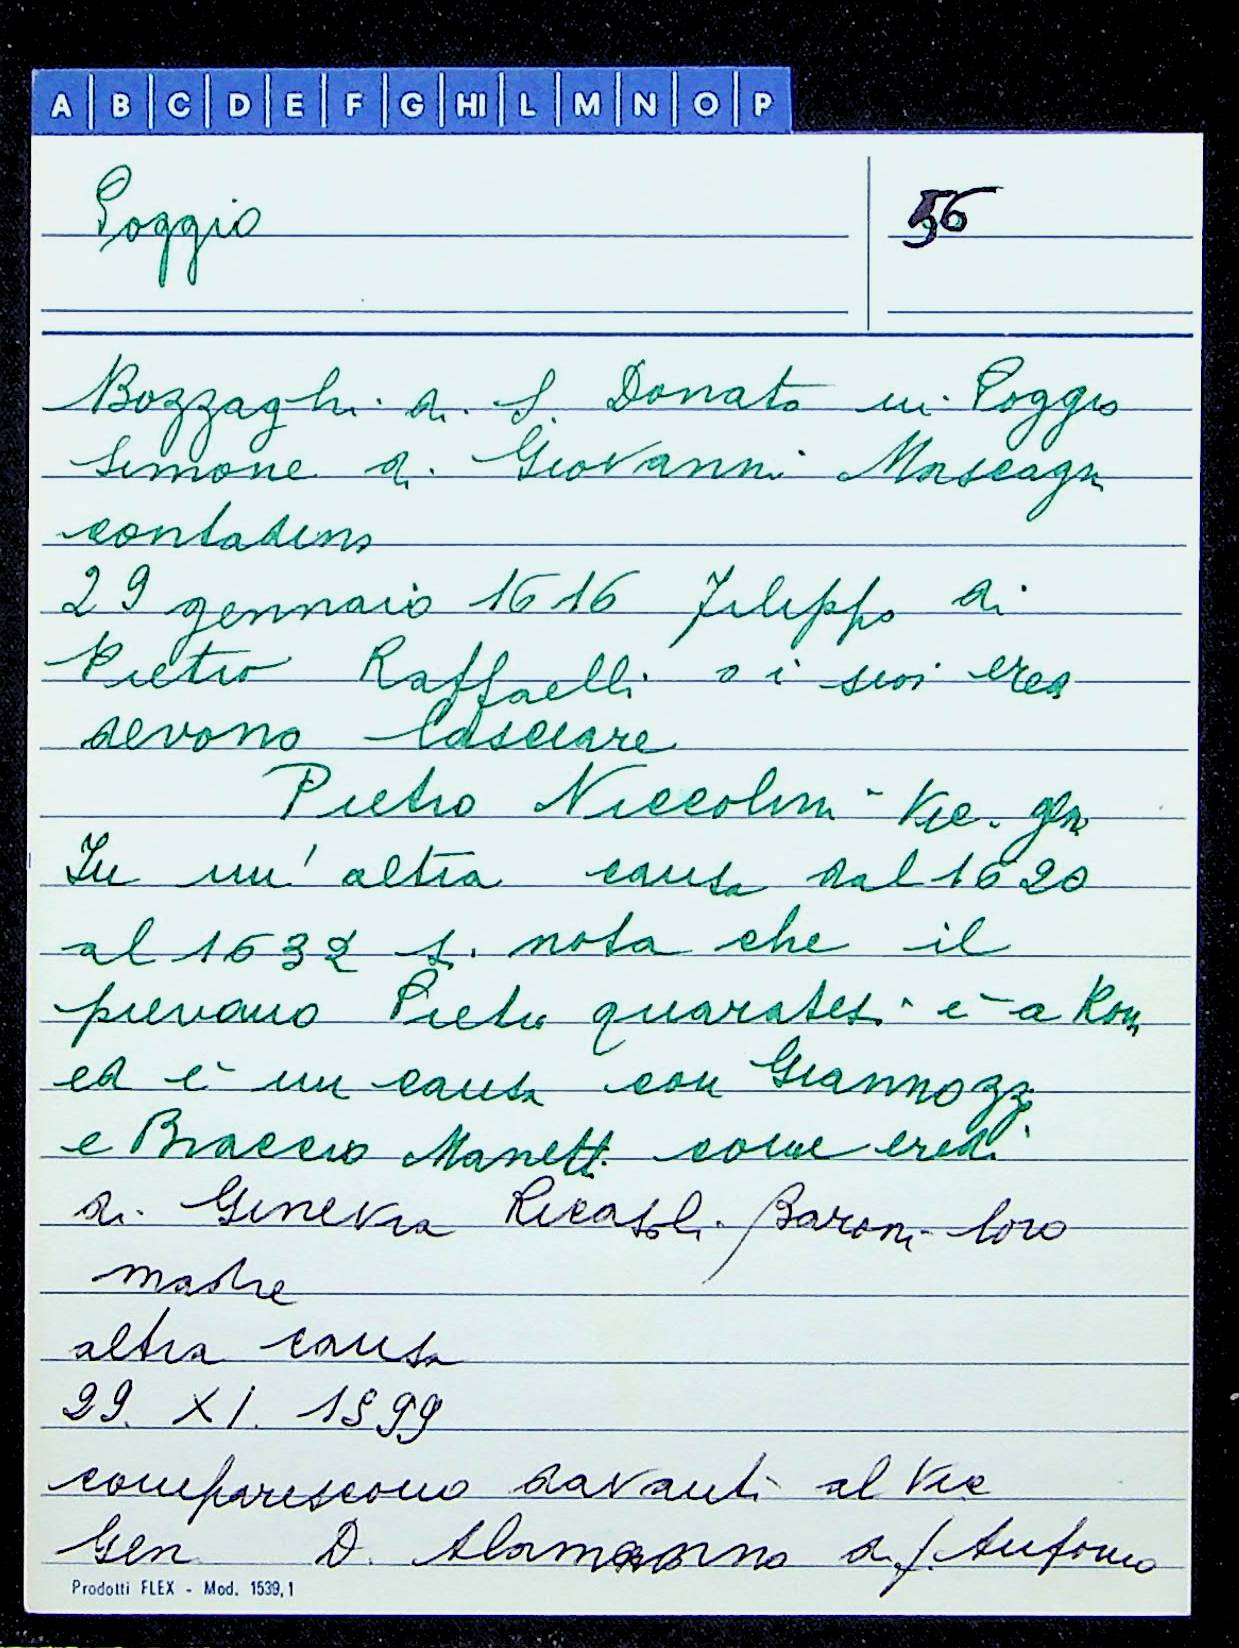 A B C D E F G HI L M N O P
Poggio 56
Bozzaghi di S. Donato in Poggio
Simone di Giovanni Mascagni
contadino
29 gennaio 1616 Filippo di
Pietro Raffaelli o i suoi eredi
devono lasciare
Pietro Niccolini - Vic. gen
In un' altra causa dal 1620
al 1632 si nota che il
pievano Pietro quaratesi è a Roma
ed è in causa con Giannozzi
e Braccio Manetti come eredi
di Ginevra Ricasoli Baroni loro
madre
altra causa
29. XI. 1599
compariscono davanti al Vic
Gen D. Alamanno di f. Antonio
Prodotti FLEX - Mod. 1539,1